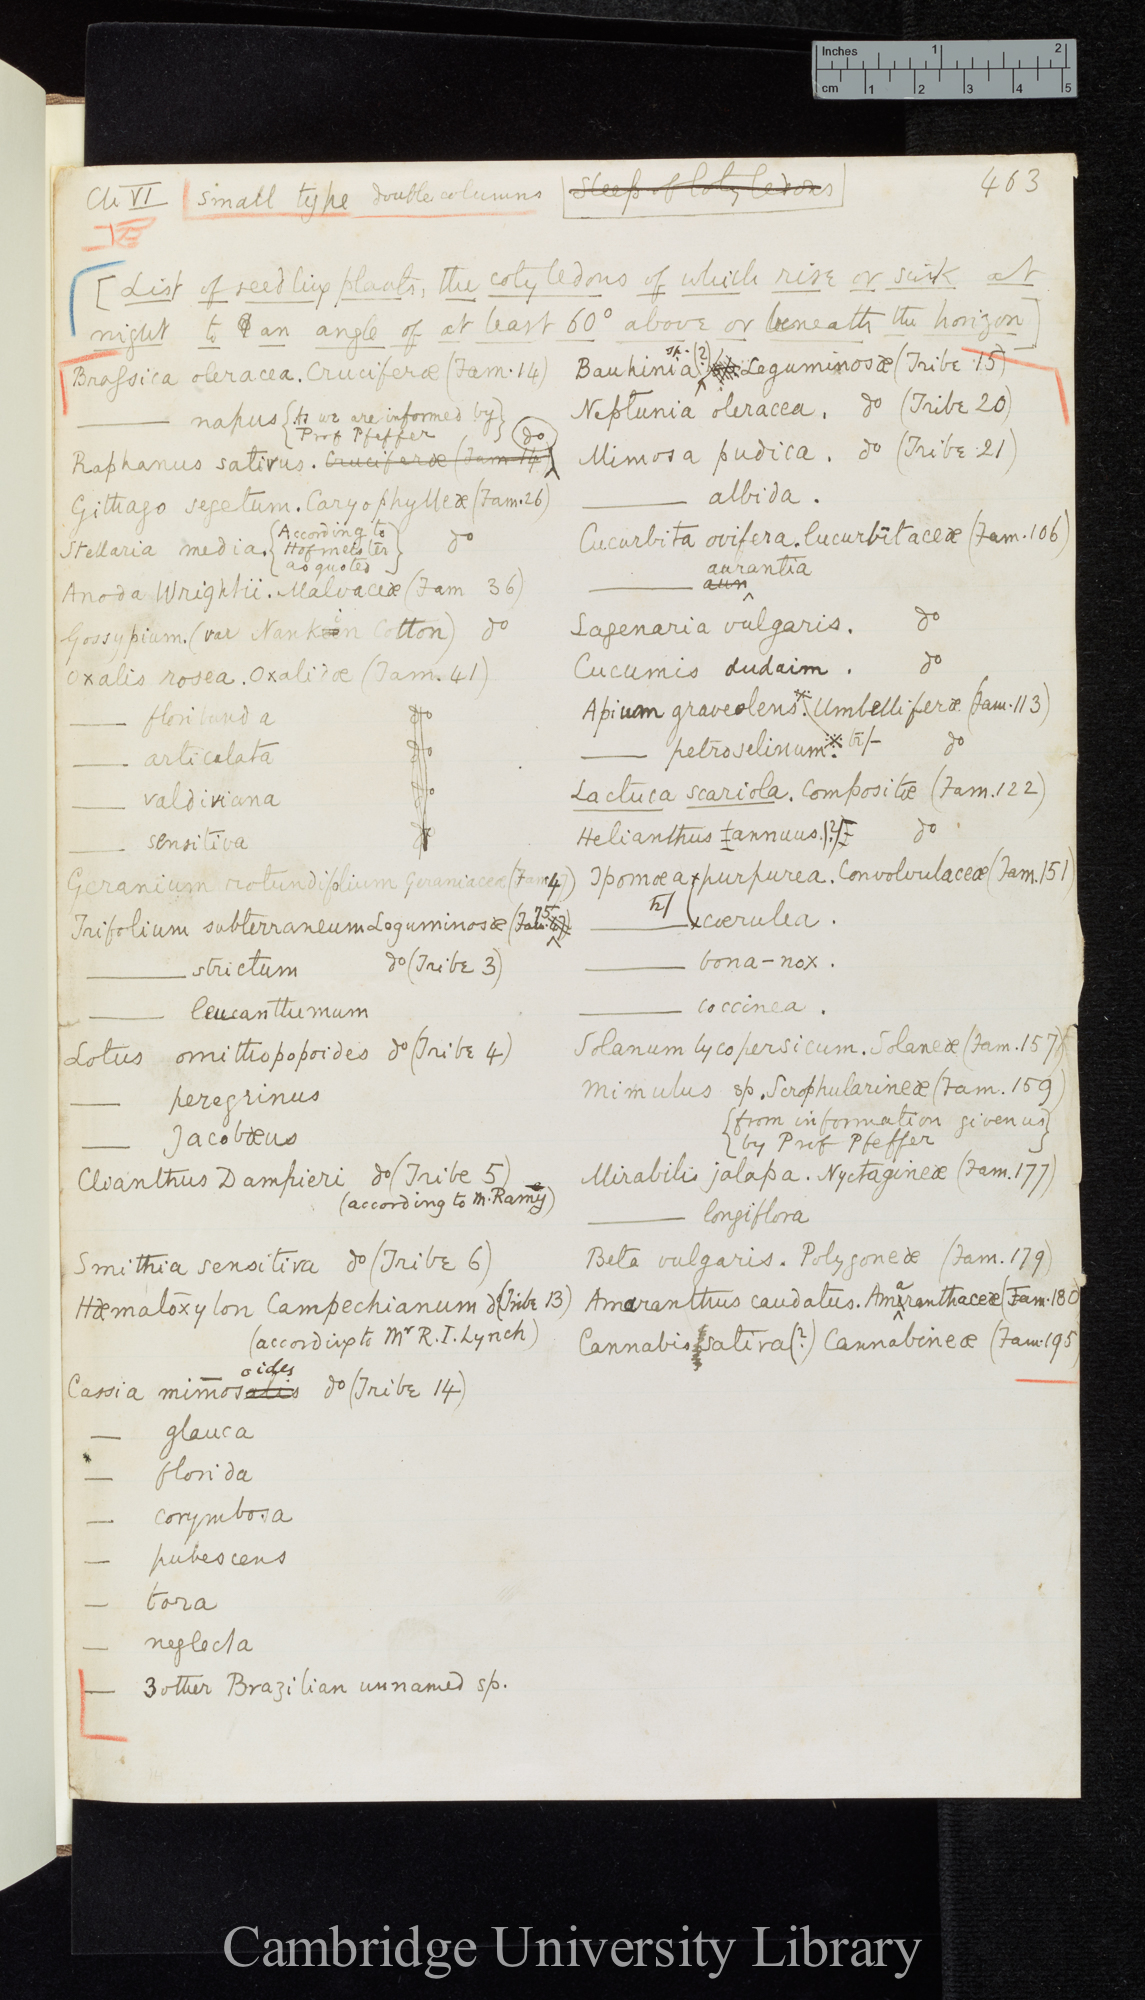 Inches 1 2
cm 1 2 3 4 5
Ch VI small type double columns Sleep of Cotyledons 463
[List of seedling plants, the cotyledons of which rise or sink at
night to an angle of at least 60° above or beneath the horizon]
Brassica oleracea. Cruciferæ (Fam. 14)
—— napus {As we are informed by
Prof Pfeffer}
do
Raphanus sativus. Cruciferæ (Fam. 14)
Githago segetum. Caryophylleæ (Fam. 26)
Stellaria media. {According to
Hofmeister
as quoted} do
Anoda Wrightii. Malvaceæ (Fam 36)
Gossypium. (var Nankin Cotton) do
Oxalis rosea. Oxalidæ (Fam. 41)
—— floribunda do
—— articulata do
—— valdiviana do
—— sensitiva do
Geranium rotundifolium Geraniaceæ (Fam 47)
Trifolium subterraneum Leguminosæ (Fam. 75)
—— strictum do (Tribe 3)
—— leucanthemum
Lotus ornithopopoides do (Tribe 4)
—— peregrinus
—— Jacobæus
Clianthus Dampieri do (Tribe 5)
(according to M. Ramey)
Smithia sensitiva do (Tribe 6)
Hæmatoxylon Campechianum do (Tribe 13)
(according to Mr R. I. Lynch)
oides
Cassia mimosalis do (Tribe 14)
—— glauca
—— florida
—— corymbosa
—— pubescens
—— tora
—— neglecta
—— 3 other Brazilian unnamed sp.
Bauhinia sp. (?) Leguminosæ (Tribe 15)
Neptunia oleracea. do (Tribe 20)
Mimosa pudica. do (Tribe 21)
—— albida.
Cucurbita ovifera. Cucurbitaceæ (Fam. 106)
aurantia
—— aun
Lagenaria vulgaris. do
Cucumis dudaim. do
Apium graveolens. Umbelliferæ (Fam. 113)
—— petroselinum. tr/- do
Lactuca scariola. Compositæ (Fam. 122)
Helianthus annuus (?) do
Ipomœa purpurea. Convolvulaceæ (Fam. 151)
tr/ —— cœrulea.
—— bona-nox.
—— coccinea.
Solanum lycopersicum. Solaneæ (Fam. 157)
Mimulus sp. Scrophularineæ (Fam. 159)
{from information given us
by Prof Pfeffer}
Mirabilis jalapa. Nyctagineæ (Fam. 177)
—— longiflora
Beta vulgaris. Polygoneæ (Fam. 179)
Amaranthus caudatus. Amaranthaceæ (Fam. 180)
Cannabis sativa (?) Cannabineæ (Fam. 195)
Cambridge University Library